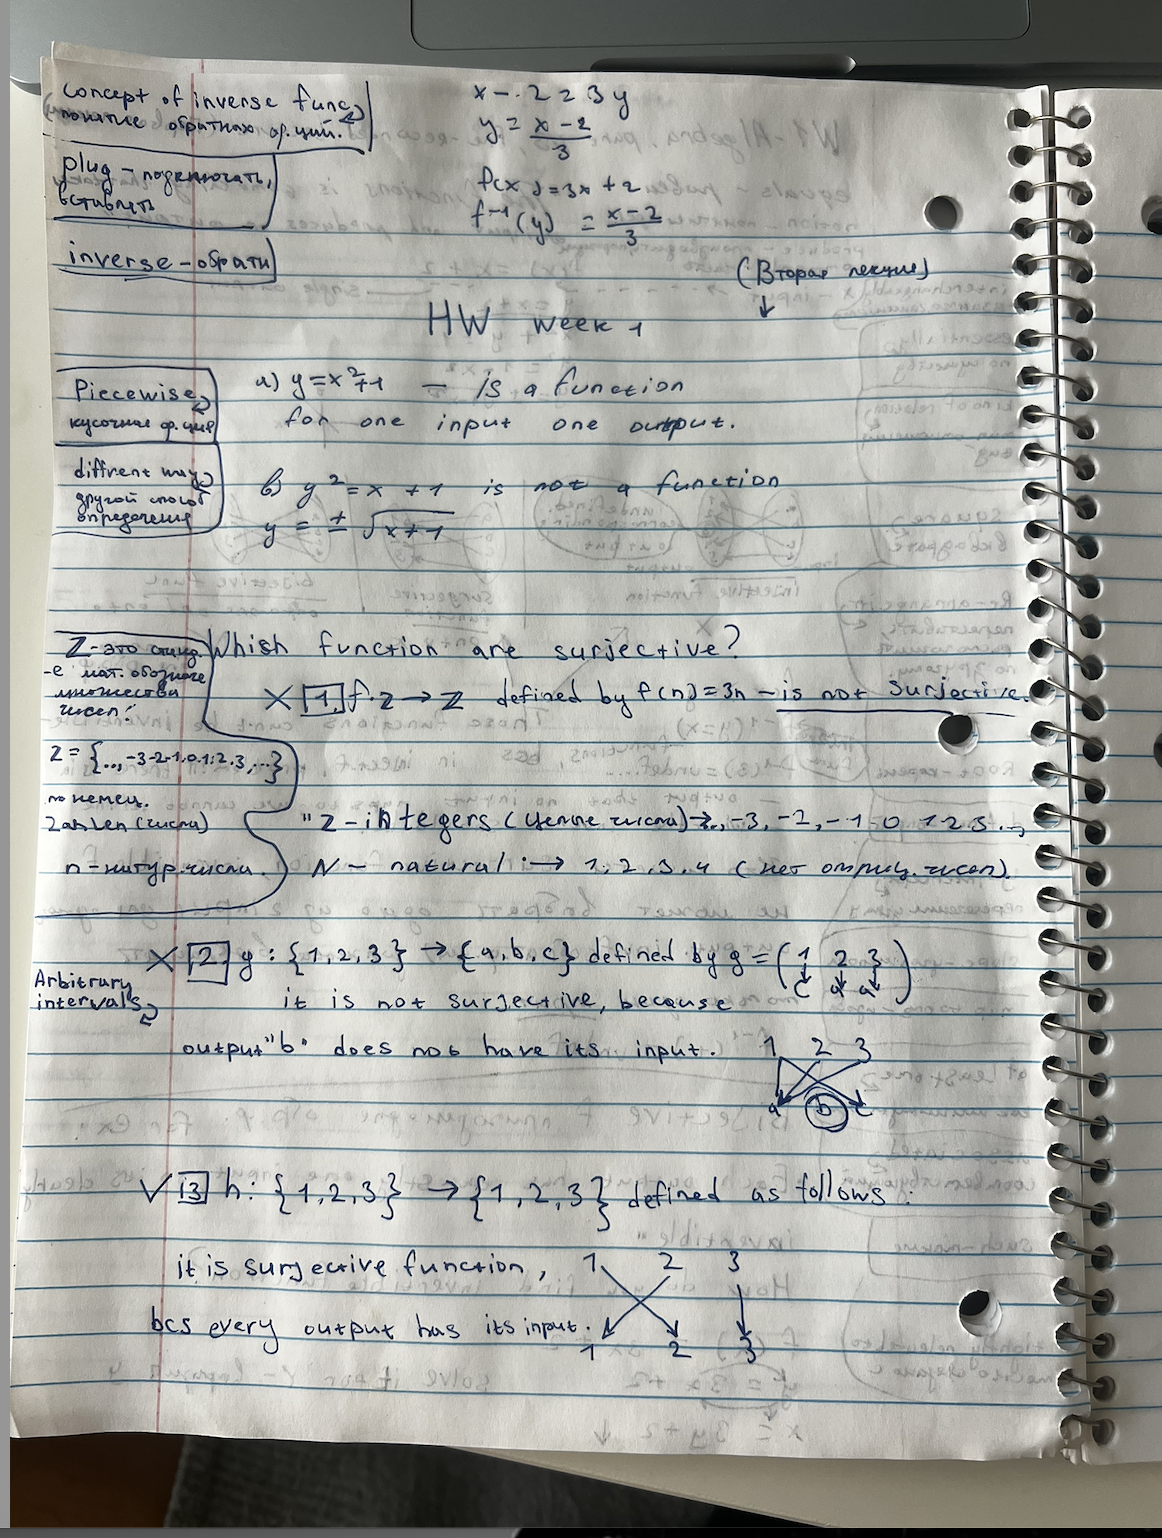 concept of inverse func
(понятие обратных ф.ций.
plug - подключать,
вставлять
inverse - обратн
x - 2 = 3y
y = x - 2 / 3
f(x) = 3x + 2
f⁻¹(y) = x - 2 / 3
(Вторая лекция)
↓
HW week 1
Piecewise
кусочные ф.ция
a) y = x² + 1 — is a function
for one input one output.
diffrent way
другой способ
определения
b) y² = x + 1 is not a function
y = ± √x + 1
Z - это станд.
-е мат. обознач
множества
чисел!
Z = {..,-3-2-1.0.1.2.3,...}
по немец.
Zahlen (числа)
n - натур. числа.
Whish function are surjective?
X 1. f: Z → Z defined by f(n) = 3n — is not surjective.
"Z - integers (целые числа) → .., -3, -2, -1 0 1 2 3 ..,
N - natural :→ 1, 2, 3, 4 (нет отриц. чисел).
Arbitrary
intervals
X 2 g: {1,2,3} → {a,b,c} defined by g = (1 2 3
↓ ↓ ↓
c a a)
it is not surjective, because
output "b" does not have its input.
1 2 3
a b c
√ 3 h: {1,2,3} → {1,2,3} defined as follows:
it is surjective function,
1 2 3
bcs every output has its input.
1 2 3